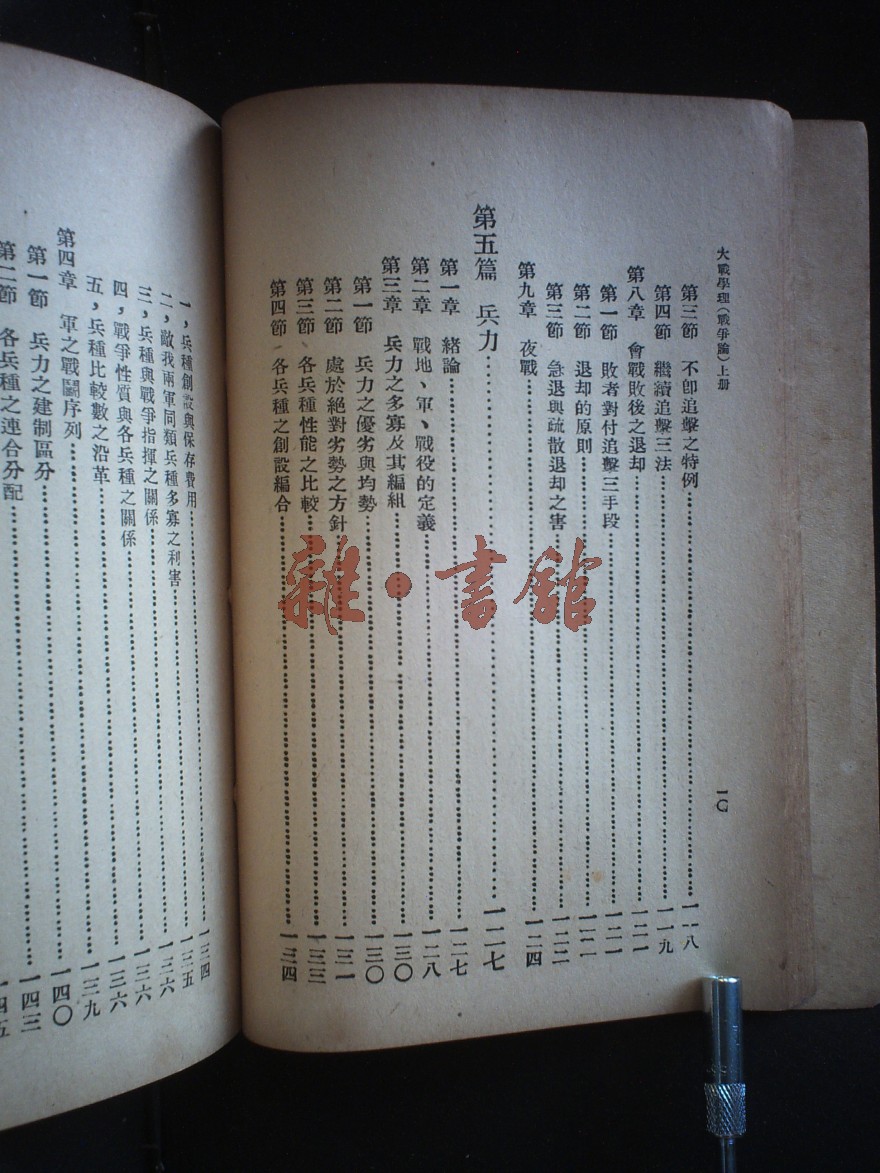 大戰學理(戰爭論)上册
一〇
第三節 不卽追擊之特例……一一八
第四節 繼續追擊三法……一一九
第八章 會戰敗後之退却……一二一
第一節 敗者對付追擊三手段……一二一
第二節 退却的原則……一二一
第三節 急退與疏散退却之害……一二二
第九章 夜戰……一二四
第五篇 兵力……一二七
第一章 緒論……一二七
第二章 戰地、軍、戰役的定義……一二八
第三章 兵力之多寡及其編組……一三〇
第一節 兵力之優劣與均勢……一三〇
第二節 處於絕對劣勢之方針……一三一
第三節 各兵種性能之比較……一三三
第四節 各兵種之創設編合……一三四
一,兵種創設與保存費用……一三四
二,敵我兩軍同類兵種多寡之利害……一三五
三,兵種與戰爭指揮之關係……一三六
四,戰爭性質與各兵種之關係……一三六
五,兵種比較數之沿革……一三九
第四章 軍之戰鬭序列……一四〇
第一節 兵力之建制區分……一四三
第二節 各兵種之連合分配……一四五
雜·書館